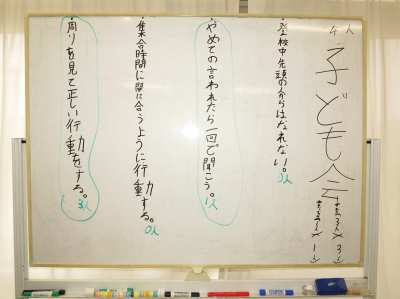 子ども会
4人
・登校中先頭の人からはなれない。
3人
・やめての言われたら一回で聞こう。
1人
・集合時間に間に合うように行動する。
0人
・周りを見て正しい行動をする。
3人